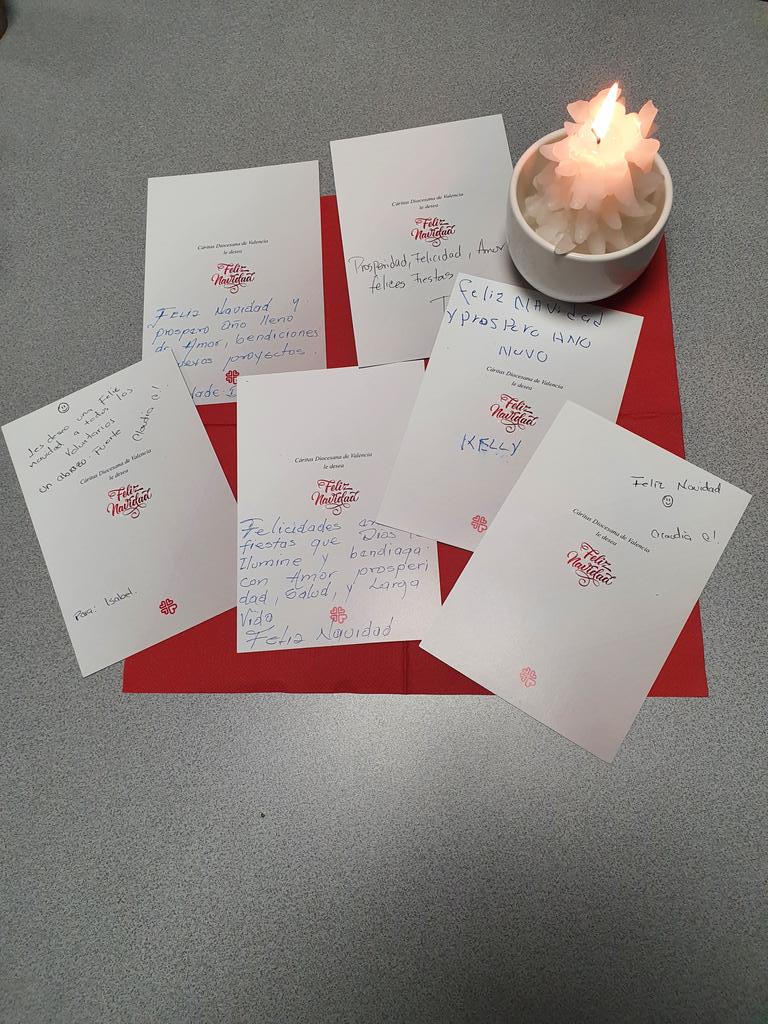 Cáritas Diocesana de Valencia
le desea
Feliz
Navidad
Feliz Navidad y
prospero Año lleno
de Amor, bendiciones
proyectos.
Cáritas Diocesana de Valencia
le desea
Feliz
Navidad
Prosperidad, Felicidad, Amor
felices Fiestas
Feliz NAVidad
Y prospero ANO
NOVO
Cáritas Diocesana de Valencia
le desea
Feliz
Navidad
KELLY
les deseo una Feliz
navidad a todos los
voluntarios
un abrazo Fuerte
Claudia c!
Cáritas Diocesana de Valencia
le desea
Feliz
Navidad
Para: Isabel.
Cáritas Diocesana de Valencia
le desea
Feliz
Navidad
Felicidades
fiestas que Dios
Ilumine y bendiaga
con Amor, prosperi
dad, Salud, y Larga
Vida
Feliz Navidad
Feliz Navidad
Claudia c!
Cáritas Diocesana de Valencia
le desea
Feliz
Navidad